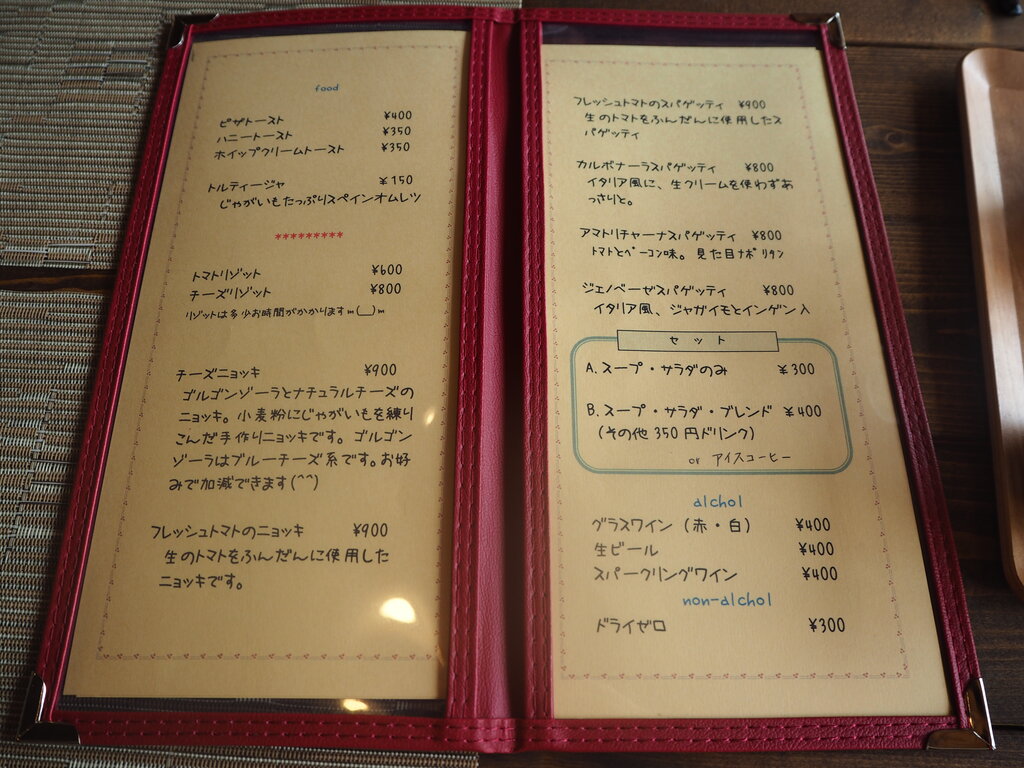 food
ピザトースト ¥400
ハニートースト ¥350
ホイップクリームトースト ¥350
トルティージャ ¥150
じゃがいもたっぷりスペインオムレツ
*********
トマトリゾット ¥600
チーズリゾット ¥800
リゾットは多少お時間がかかりますm(__)m
チーズニョッキ ¥900
ゴルゴンゾーラとナチュラルチーズの
ニョッキ。小麦粉にじゃがいもを練り
こんだ手作りニョッキです。ゴルゴン
ゾーラはブルーチーズ系です。お好
みで加減できます(^^)
フレッシュトマトのニョッキ ¥900
生のトマトをふんだんに使用した
ニョッキです。
フレッシュトマトのスパゲッティ ¥900
生のトマトをふんだんに使用したス
パゲッティ
カルボナーラスパゲッティ ¥800
イタリア風に、生クリームを使わずあ
っさりと。
アマトリチャーナスパゲッティ ¥800
トマトとベーコン味。見た目ナポリタン
ジェノベーゼスパゲッティ ¥800
イタリア風、ジャガイモとインゲン入
セット
A.スープ・サラダのみ ¥300
B.スープ・サラダ・ブレンド ¥400
(その他350円ドリンク)
or アイスコーヒー
alchol
グラスワイン（赤・白） ¥400
生ビール ¥400
スパークリングワイン ¥400
non-alchol
ドライゼロ ¥300